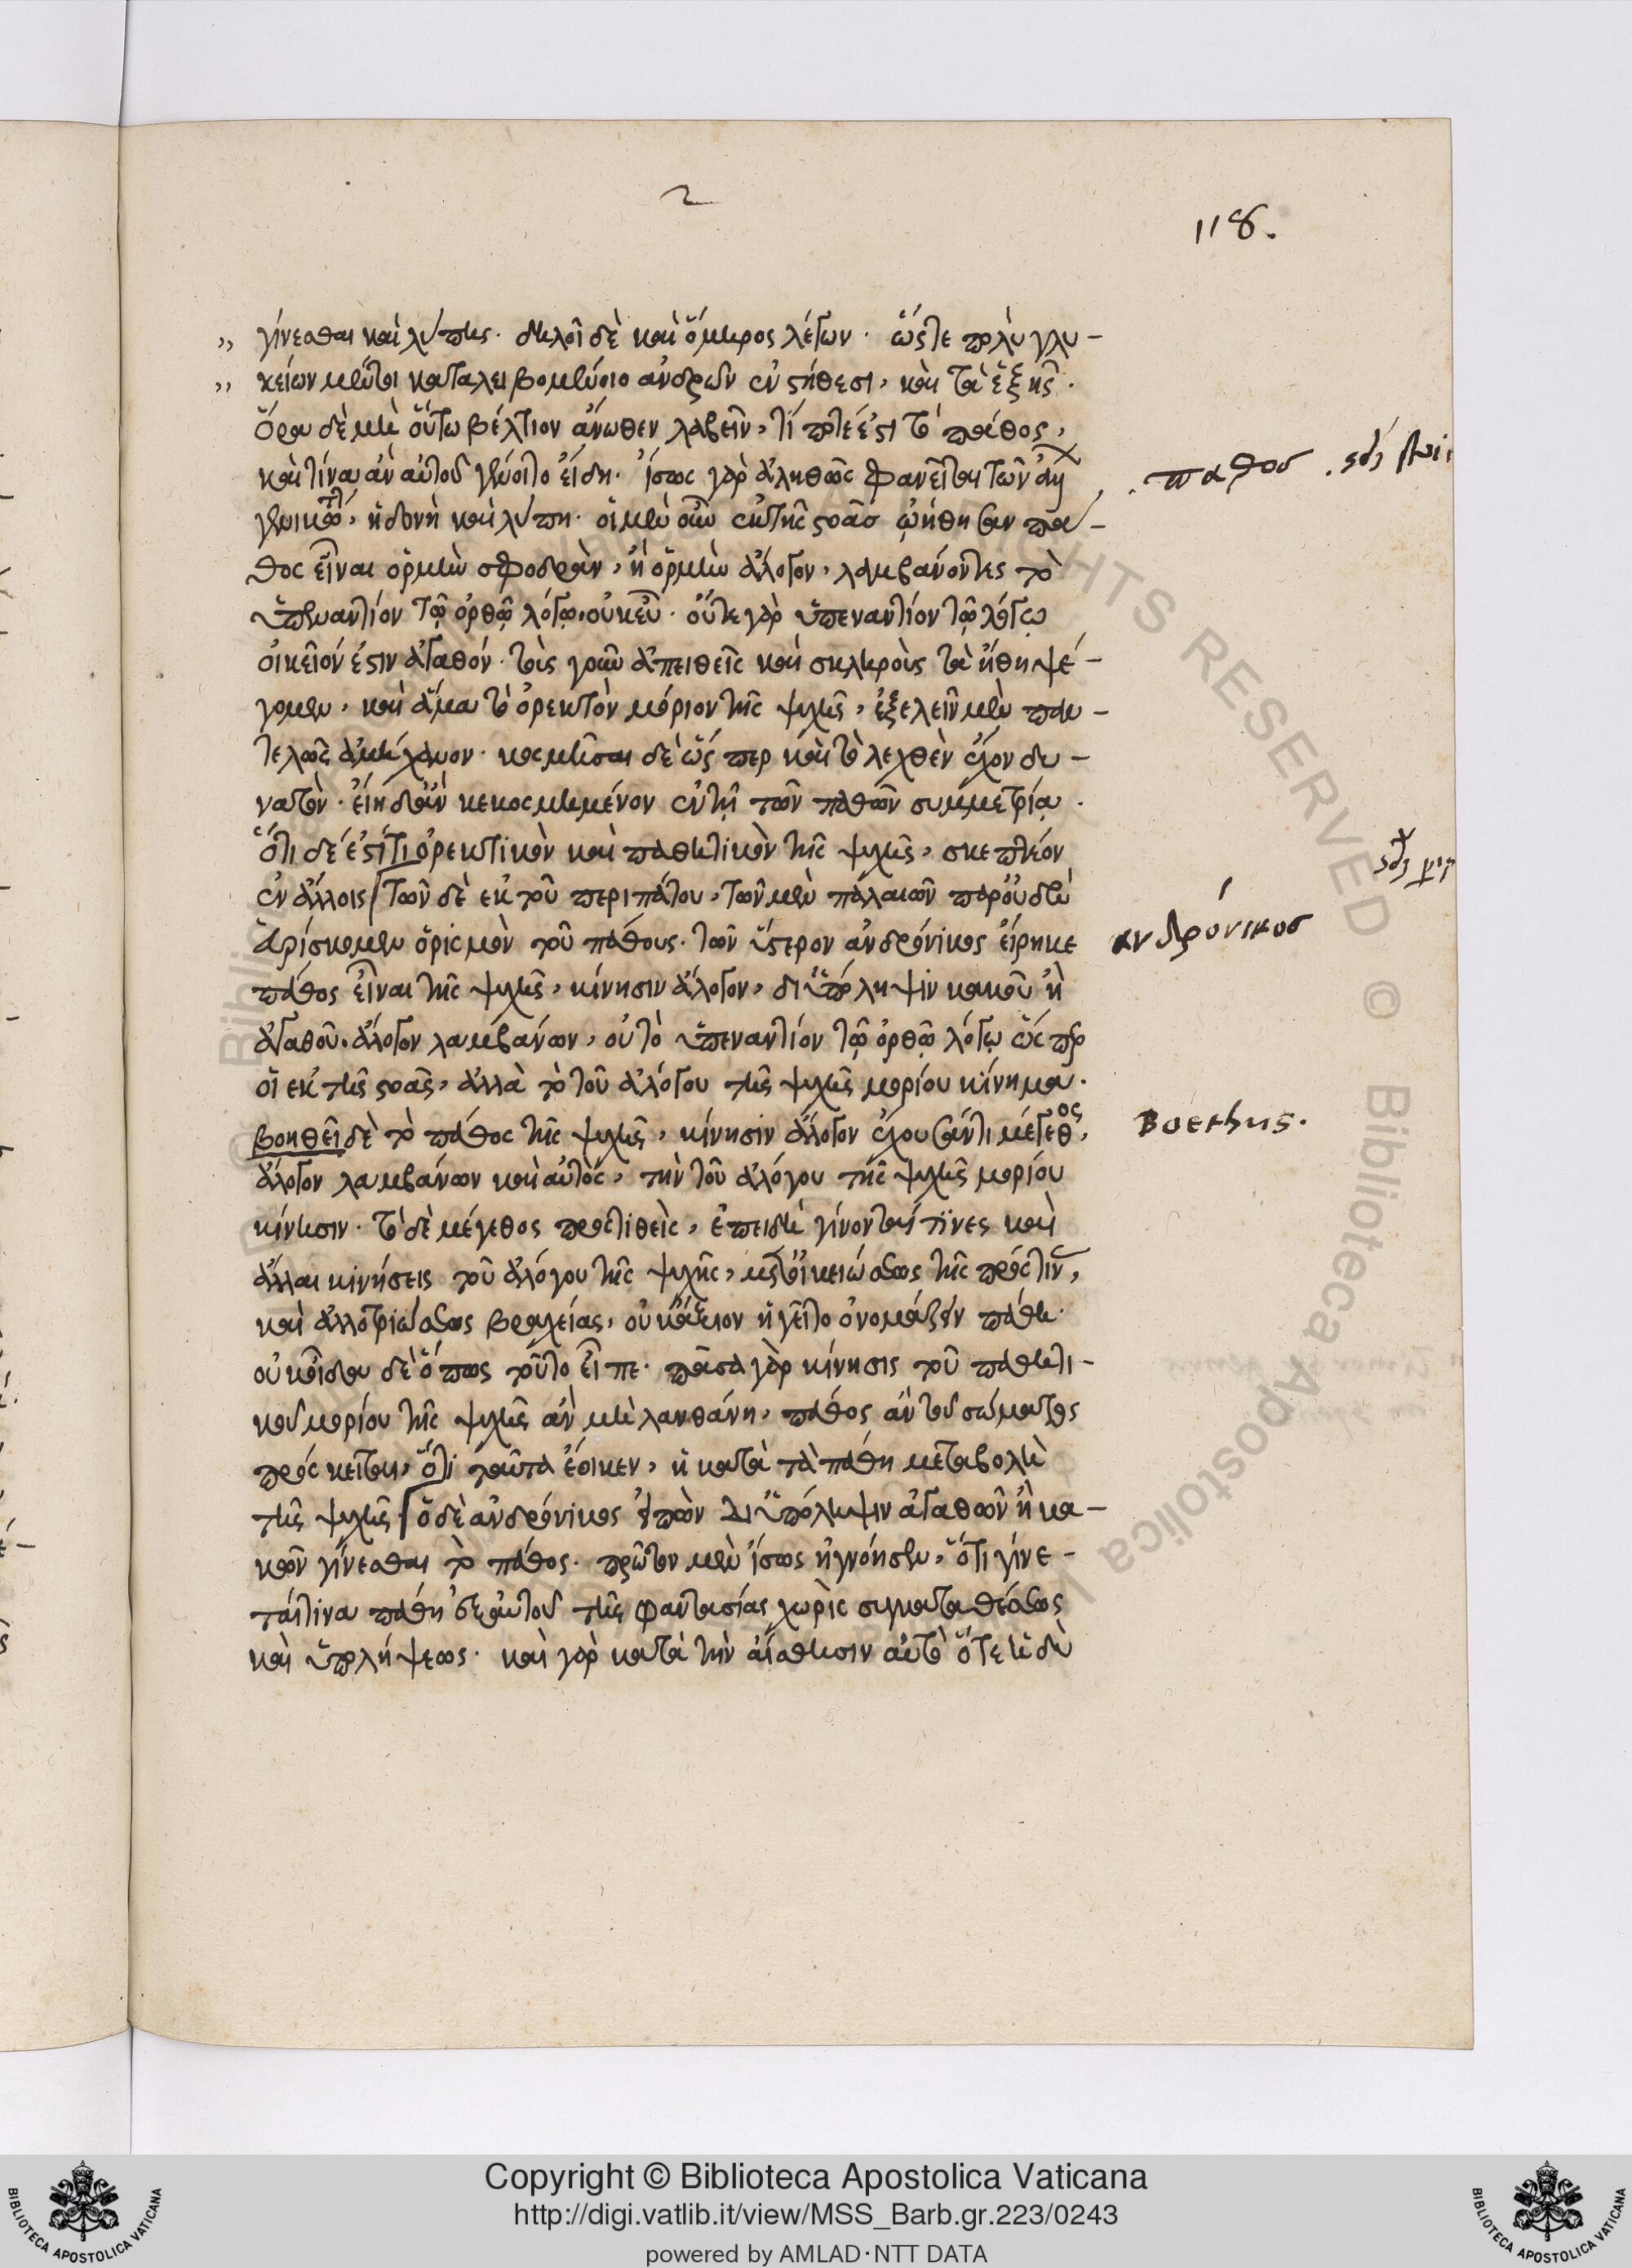 2
118.
γίνεσθαι καὶ λύπης. δηλοῖ δὲ καὶ ὅμηρος λέγων. ὥστε πολὺ γλυ-
κείων μέλιτοι καταλειβομένοιο ἀνδρῶν ἐν στήθεσι, καὶ τὰ ἑξῆς.
ὅρα δὲ μὴ οὕτω βέλτιον ἄνωθεν λαβεῖν, τί ποτέ ἐστι τὸ πάθος,
καὶ τίνα ἂν αὐτοῦ γένοιτο εἴδη. ἴσως γὰρ ἀληθῶς φανεῖται τῶν
γενικωτάτων, ἡδονὴ καὶ λύπη. οἱ μὲν οὖν ἐκ τῆς στοᾶς ᾠήθησαν πά-
θος εἶναι ὁρμὴν σφοδρὰν, ἢ ὁρμὴν ἄλογον, λαμβάνοντες τὸ
ὑπεναντίον τῷ ὀρθῷ λόγῳ. οὐκ εὖ. οὔτε γὰρ ὑπεναντίον τῷ λόγῳ
οἰκεῖόν ἐστιν ἀγαθόν. τοὺς γοῦν ἀπειθεῖς καὶ σκληροὺς τὰ ἤθη ψέ-
γομεν, καὶ ἅμα τὸ ὀρεκτὸν μόριον τῆς ψυχῆς, ἐξελεῖν μὲν παν-
τελῶς ἀμήχανον. κοσμῆσαι δὲ ὥσπερ καὶ τὸ λεχθὲν ἔχον δυ-
νατὸν. εἴη δ' ἂν κεκοσμημένον ἐν τῇ τῶν παθῶν συμμετρίᾳ.
ὅτι δέ ἐστί τι ὀρεκτικὸν καὶ παθητικὸν τῆς ψυχῆς, σκεπτέον
ἐν ἄλλοις τῶν δὲ ἐκ τοῦ περιπάτου, τῶν μὲν παλαιῶν παρ' οὐδενὶ
εὑρίσκομεν ὁρισμὸν τοῦ πάθους. τῶν ὕστερον ἀνδρόνικος εἴρηκε
πάθος εἶναι τῆς ψυχῆς, κίνησιν ἄλογον, δι' ὑπόληψιν κακοῦ ἢ
ἀγαθοῦ. ἄλογον λαμβάνων, οὐ τὸ ὑπεναντίον τῷ ὀρθῷ λόγῳ ὥσπερ
οἱ ἐκ τῆς στοᾶς, ἀλλὰ τὸ τοῦ ἀλόγου τῆς ψυχῆς μορίου κίνημα.
βοηθεῖ δὲ τὸ πάθος τῆς ψυχῆς, κίνησιν ἄλογον ἔχουσάν τι μέγεθος,
ἄλογον λαμβάνων καὶ αὐτὸς, τὴν τοῦ ἀλόγου τῆς ψυχῆς μορίου
κίνησιν. τὸ δὲ μέγεθος προστιθεὶς, ἐπειδὴ γίνονταί τινες καὶ
ἄλλαι κινήσεις τοῦ ἀλόγου τῆς ψυχῆς, μετ' οἰκειώσεως τῆς πρός τινα,
καὶ ἀλλοτριώσεως βραχείας, οὐκ ἄξιον ἡγεῖτο ὀνομάζειν πάθη.
οὐκ οἶδα δὲ ὅπως τοῦτο εἶπε. πᾶσα γὰρ κίνησις τοῦ παθητι-
κοῦ μορίου τῆς ψυχῆς ἂν μὴ λανθάνῃ, πάθος ἂν τοῦ σώματος
πρόσκειται, ὅτι ταῦτα ἔοικεν, ἡ κατὰ τὰ πάθη μεταβολὴ
τῆς ψυχῆς ὁ δὲ ἀνδρόνικος εἰπὼν δι' ὑπόληψιν ἀγαθῶν ἢ κα-
κῶν γίνεσθαι τὸ πάθος. πρῶτον μὲν ἴσως ἠγνόησεν, ὅτι γίνε-
ταί τινα πάθη ἐξ αὐτοῦ τῆς φαντασίας χωρὶς συγκαταθέσεως
καὶ ὑπολήψεως. καὶ γὰρ κατὰ τὴν αἴσθησιν αὐτὸ ὅτε ἡδὺ
παθοσ
ανδρόνικοσ
Boethus.
Copyright © Biblioteca Apostolica Vaticana
http://digi.vatlib.it/view/MSS_Barb.gr.223/0243
powered by AMLAD·NTT DATA